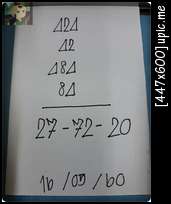 Δ2Δ
Δ2
Δ8Δ
8Δ
27-72-20
[447x600] upic.me